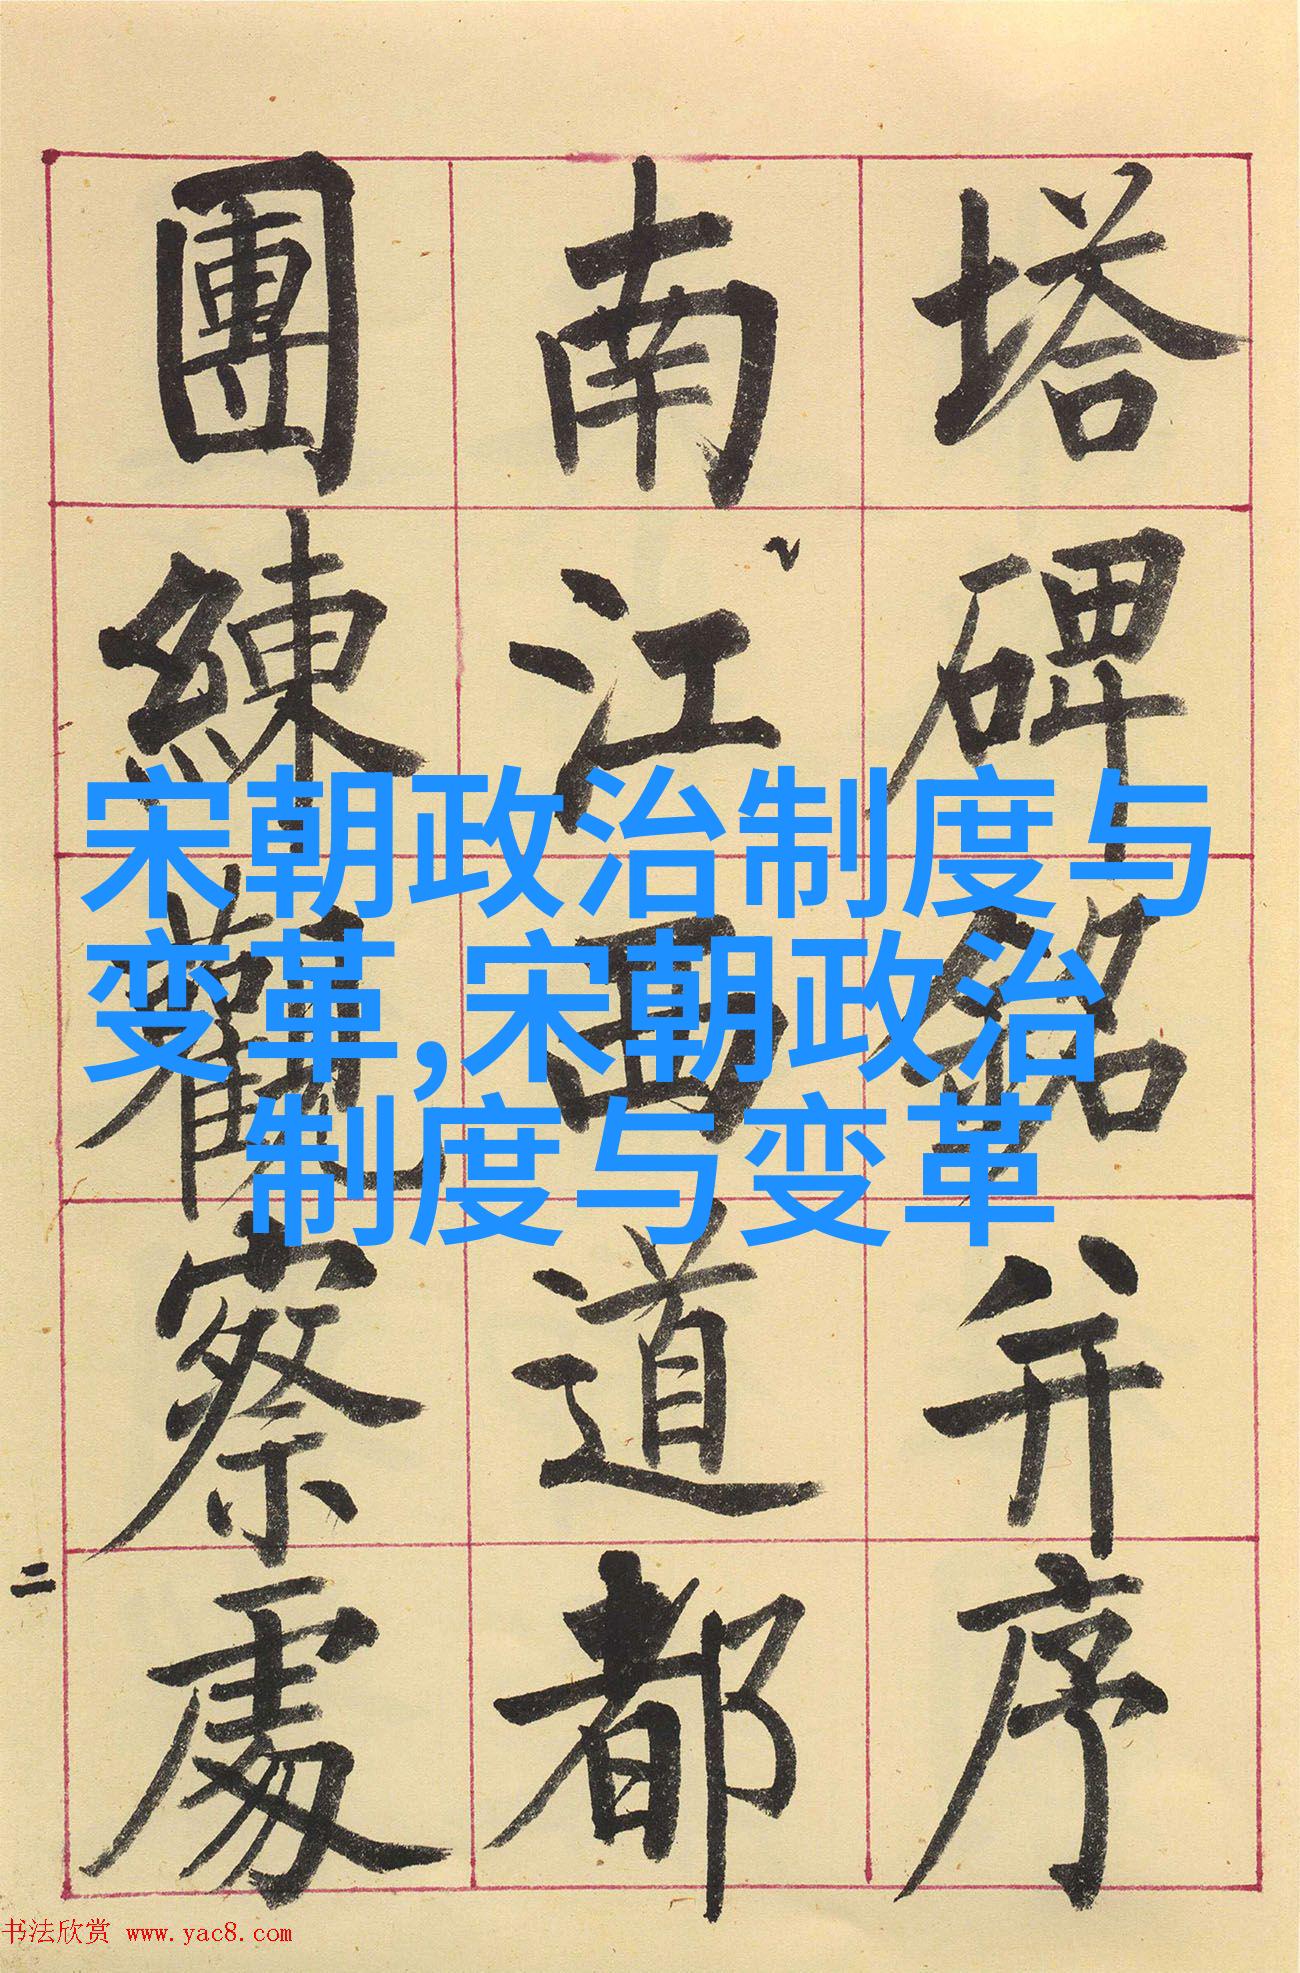 塔碑銘并序
南江西道都
團練觀察處
二
宋朝政治制度与
变革,宋朝政治
制度与变革
书法欣赏 www.yac8.com